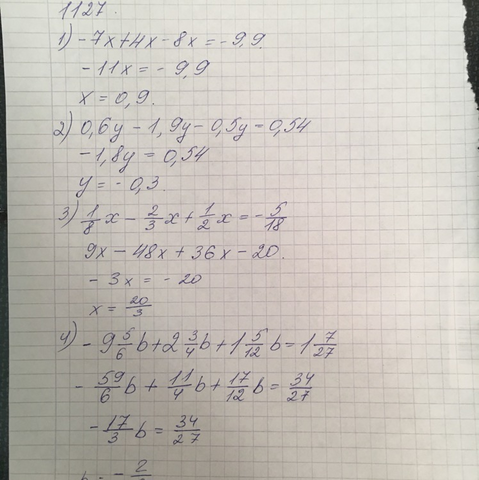 1127.
1) -7x+4x-8x=-9,9.
-11x=-9,9
x=0,9.
2) 0,6y-1,9y-0,5y=0,54
-1,8y=0,54
y=-0,3.
3) 1/8 x - 2/3 x + 1/2 x = -5/18
9x-48x+36x-20.
-3x=-20
x=20/3
4) -9 5/6 b+2 3/4 b+1 5/12 b=1 7/27
-59/6 b + 11/4 b + 17/12 b = 34/27
-17/3 b = 34/27